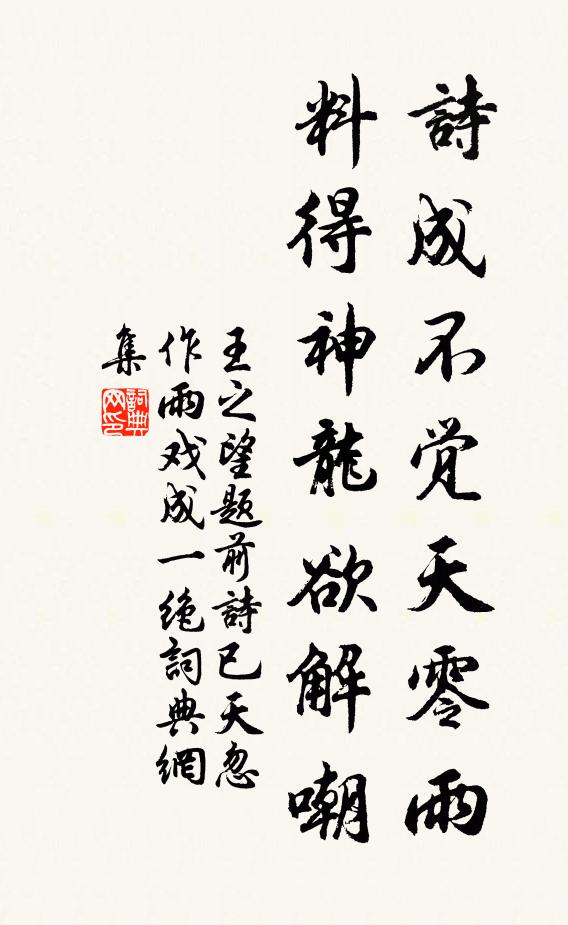 詩成不觉天零雨
料得神龍欲解嘲
王之望題前詩已天忽
作雨戏成一绝詞典網
集
詞典
网印